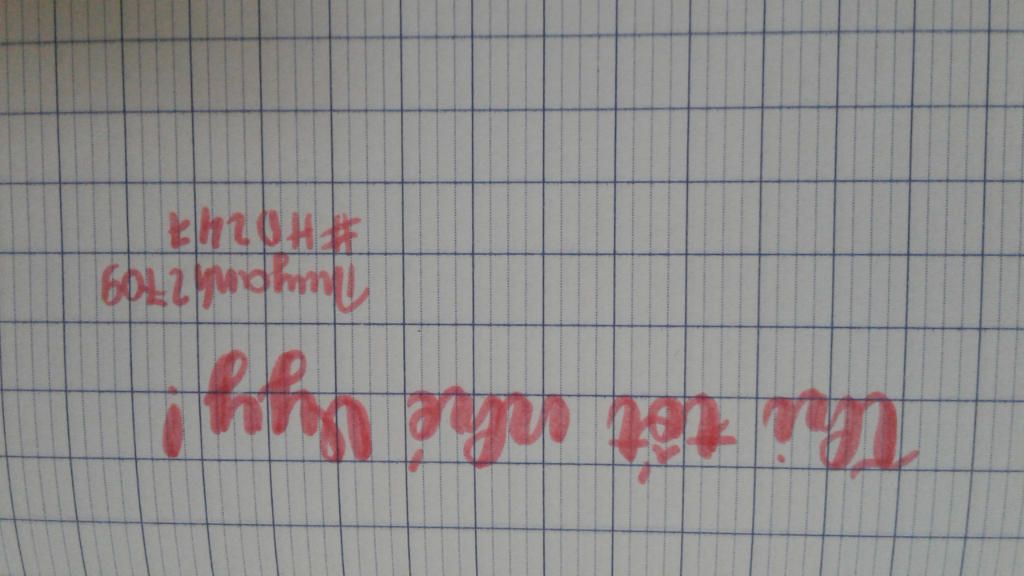 Thi tốt nhé Vyy!
Thuyanh2709
#HD247